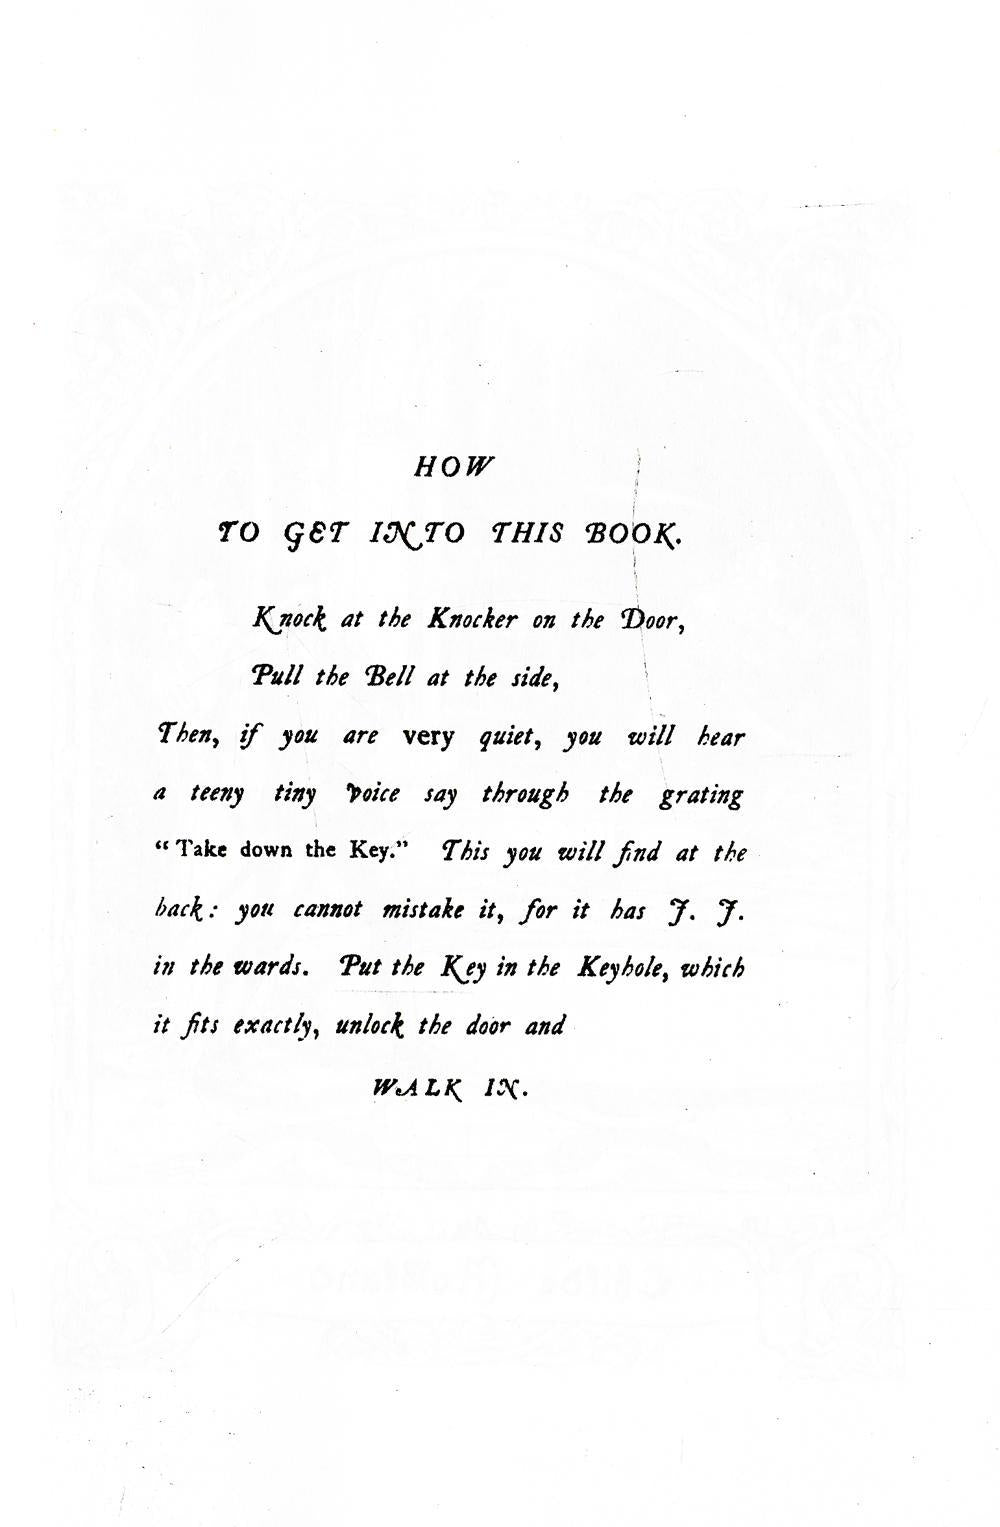 HOW
TO GET INTO THIS BOOK.
Knock at the Knocker on the Door,
Pull the Bell at the side,
Then, if you are very quiet, you will hear
a teeny tiny voice say through the grating
“Take down the Key.” This you will find at the
back: you cannot mistake it, for it has J. J.
in the wards. Put the Key in the Keyhole, which
it fits exactly, unlock the door and
WALK IN.